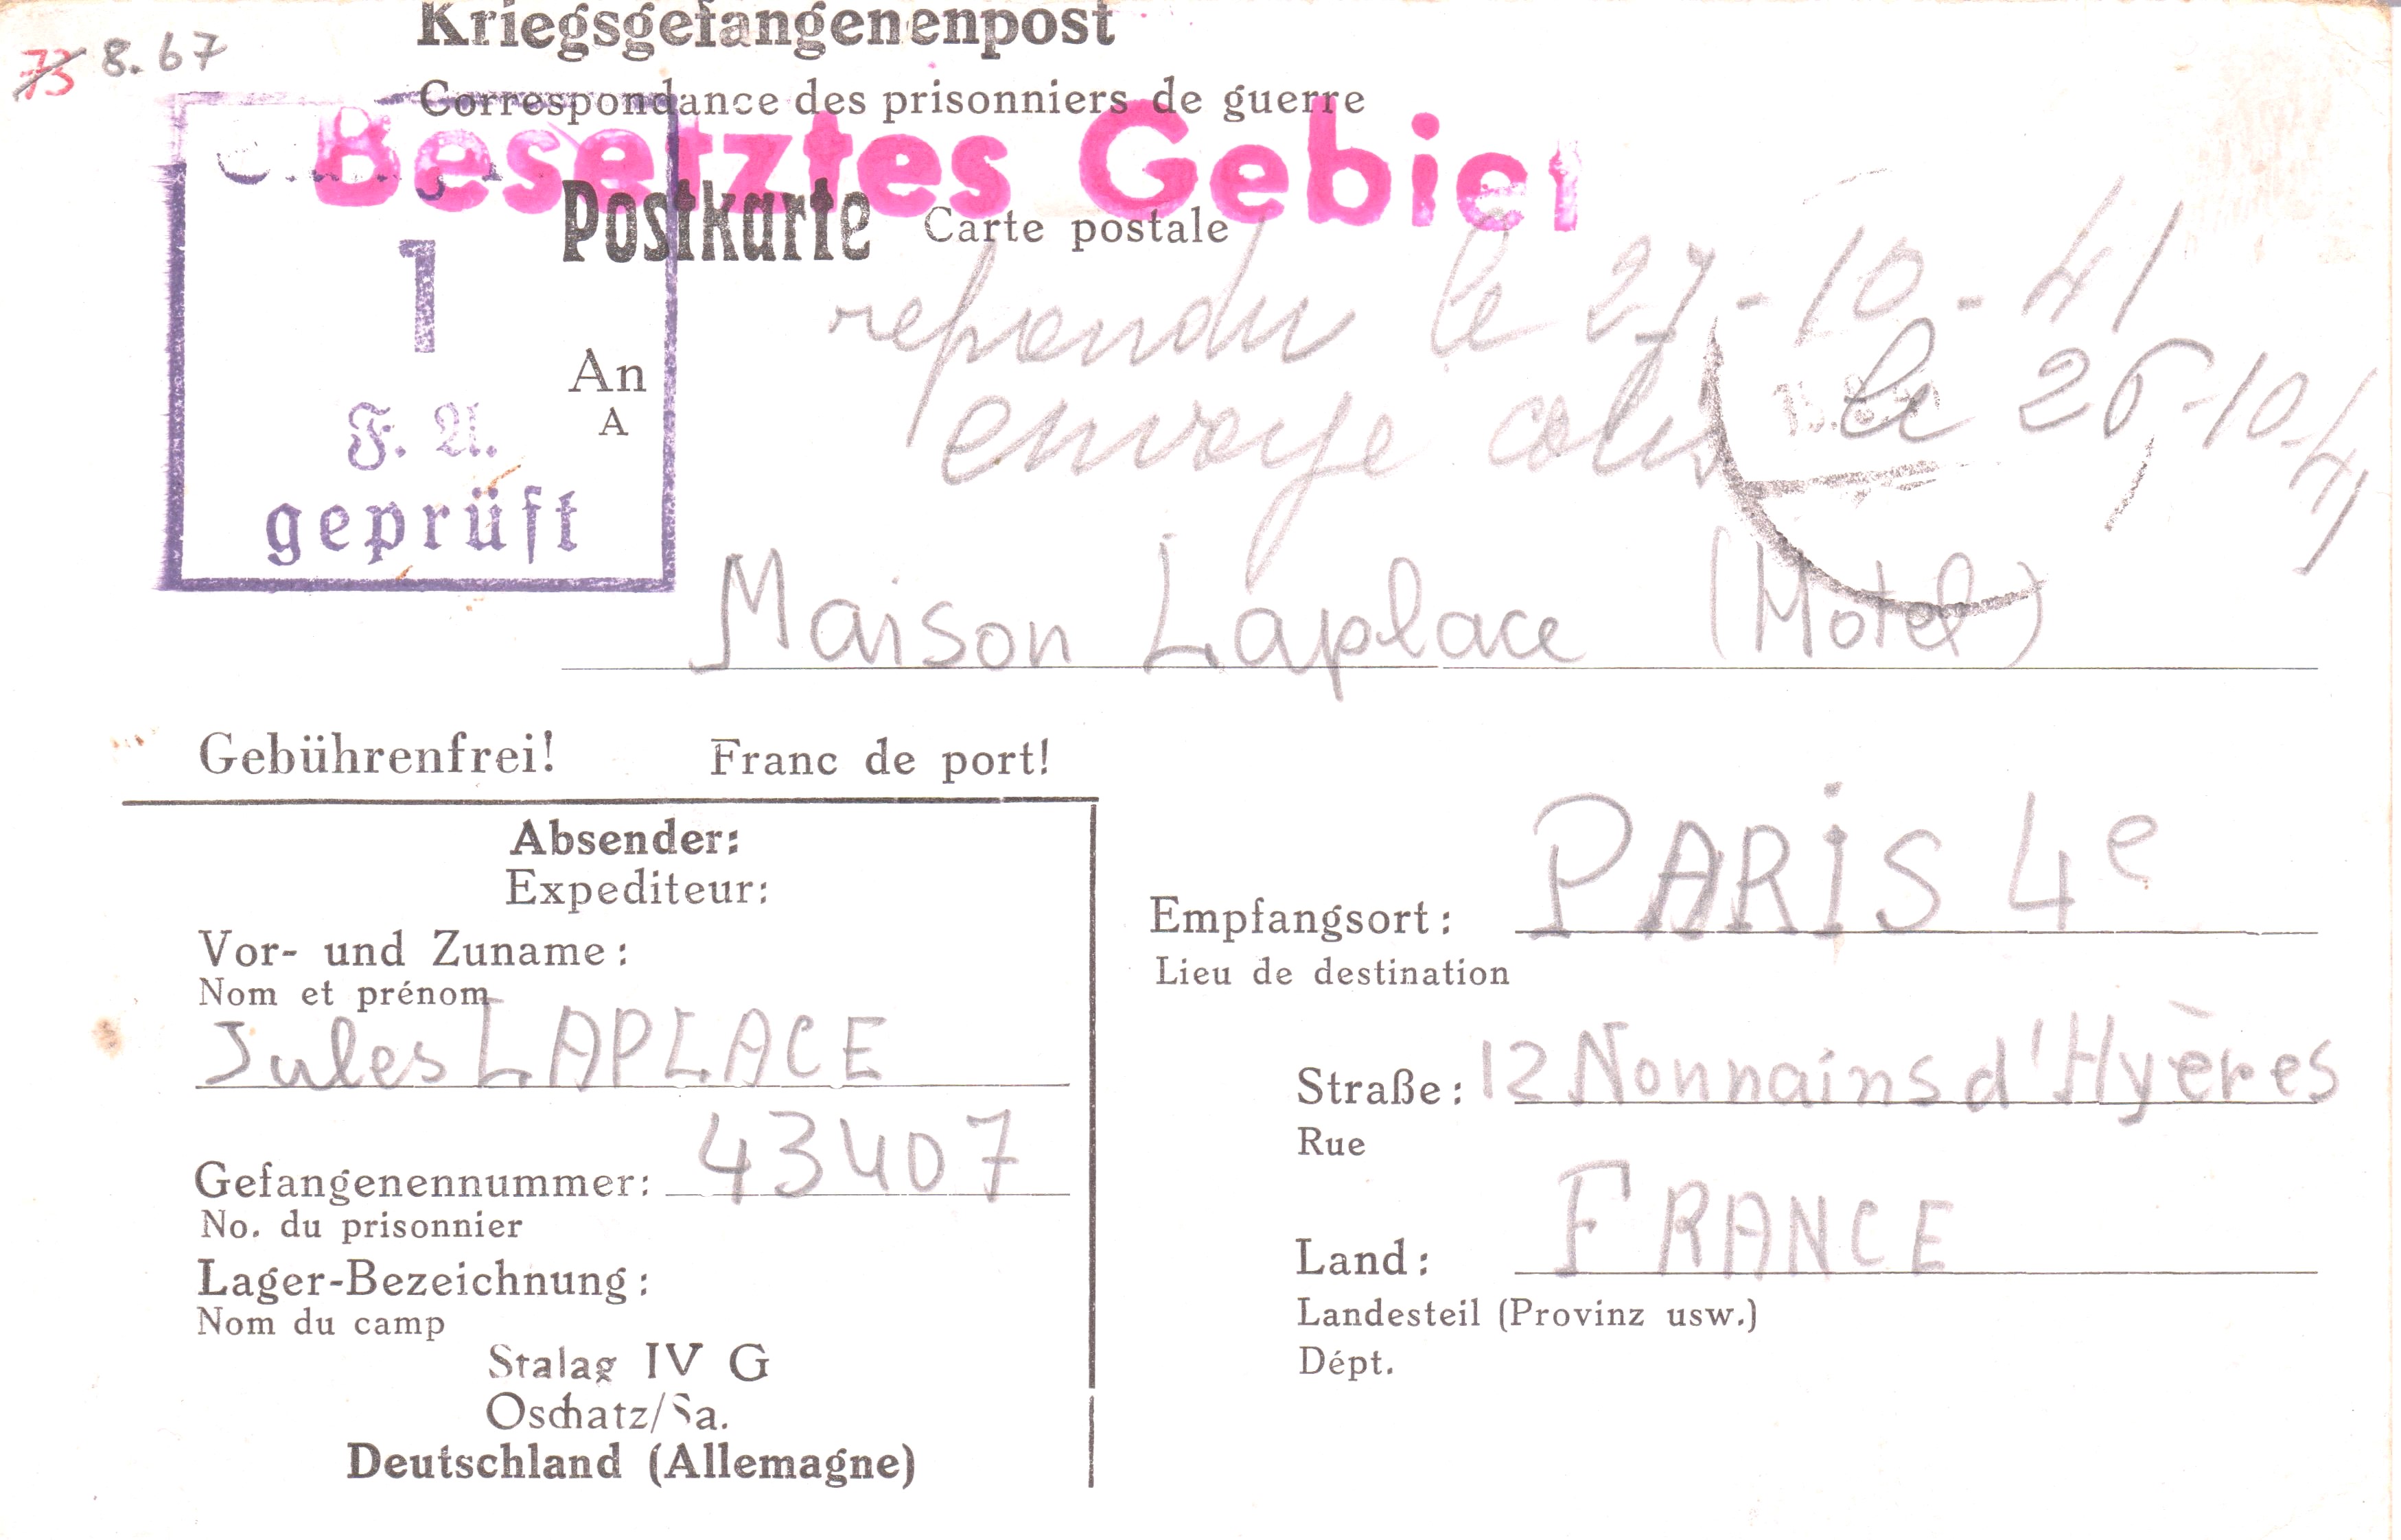 Kriegsgefangenenpost
73 8.67
Correspondance des prisonniers de guerre
Besetztes Gebiet
Postkarte Carte postale
1
F. A.
geprüft
An
A
repondu le 27-10-41
envoye colis le 26-10-41
Maison Laplace (Motel)
Gebührenfrei! Franc de port!
Absender:
Expediteur:
Vor- und Zuname:
Nom et prénom
Jules LAPLACE
Gefangenennummer: 43407
No. du prisonnier
Lager-Bezeichnung:
Nom du camp
Stalag IV G
Oschatz/Sa.
Deutschland (Allemagne)
Empfangsort: PARIS 4e
Lieu de destination
Straße: 12 Nonnains d'Hyères
Rue
Land: FRANCE
Landesteil (Provinz usw.)
Dépt.